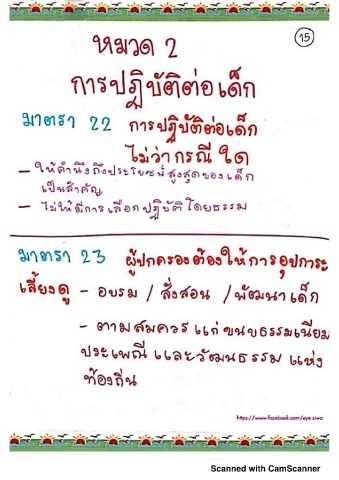 15
หมวด 2
การปฏิบัติต่อเด็ก
มาตรา 22 การปฏิบัติต่อเด็ก
ไม่ว่ากรณีใด
- ให้คำนึงถึงประโยชน์สูงสุดของเด็ก
เป็นสำคัญ
- ไม่ให้มีการเลือกปฏิบัติโดยธรรม
มาตรา 23 ผู้ปกครองต้องให้การอุปการะ
เลี้ยงดู - อบรม / สั่งสอน / พัฒนาเด็ก
- ตามสมควรแก่ขนบธรรมเนียม
ประเพณี และวัฒนธรรม แห่ง
ท้องถิ่น
https://www.facebook.com/eye.siwa
Scanned with CamScanner